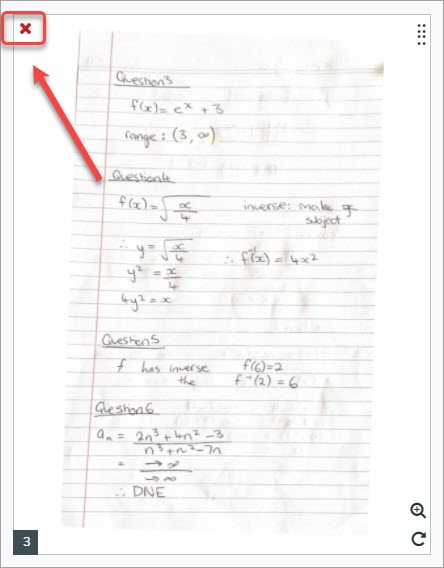 Question3
f(x) = e^x + 3
range: (3, ∞)
Question4
f(x) = √(x/4) inverse: make x subject
∴ y = √(x/4) ∴ f⁻¹(x) = 4x²
y² = x/4
4y² = x
Question5
f has inverse f(6)=2
the f⁻¹(2) = 6
Question6
aₙ = (2n³ + 4n² - 3)/(n³ + n² - 7n)
= →∞/→∞
∴ DNE
3